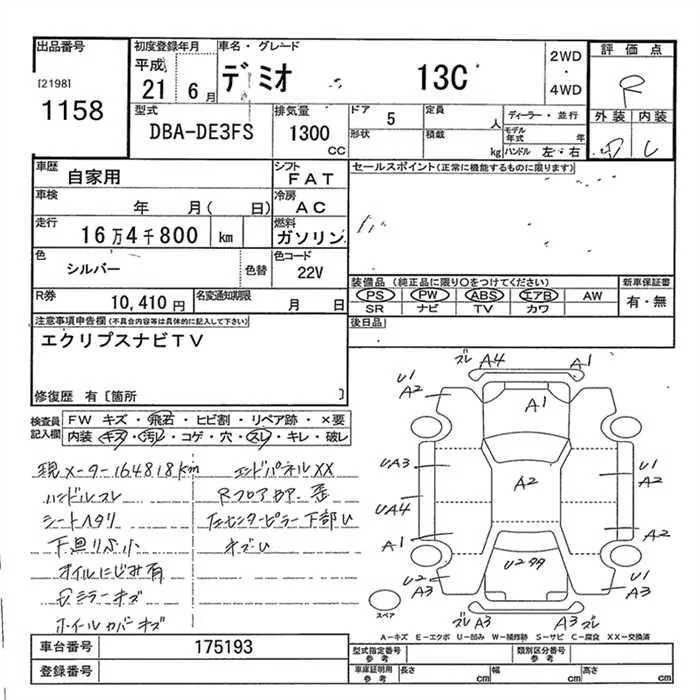 出品番号
[2198]
1158
初度登録年月
平成
21 6月
車名・グレード
デミオ 13C
2WD
・
4WD
評価点
R
外装 内装
D
型式
DBA-DE3FS
排気量
1300
CC
ドア
5
定員
人
形状
積載
kg
ディーラー・並行
モデル年式 年
ハンドル 左・右
車歴
自家用
シフト
FAT
車検
年 月( 日)
冷房
AC
走行
16万4千800 km
燃料
ガソリン
色
シルバー
色替
色コード
22V
R券
10,410円
名変通知期限
月 日
セールスポイント(正常に機能するものに限ります)
装備品 (純正品に限り○をつけてください)
PS PW ABS エアB AW
SR ナビ TV カワ
新車保証書
有・無
後日品
注意事項申告欄(不具合内容等は具体的に記入して下さい)
エクリプスナビTV
修復歴 有〔箇所 〕
検査員
記入欄
FW キズ・飛石・ヒビ割・リペア跡・×要
内装・キズ・汚レ・コゲ・穴・スレ・キレ・破レ
現メーター164818km
ハンドルスレ
シートヘタリ
下廻りサ小
オイルにじみ有
ミラーキズ
ホイールカバーキズ
エンドパネルXX
Rフロアカバー歪
左センターピラー下部U
キズU
ズレ A4 A1
U1
A2
A1
A2
U1
UA3
A2
U1
A3
UA4
A1
A2
U2
A3
U2
U1
A3
スペア
ズレ A3 A3 ズレ
A-キズ E-エクボ U-凹み W-補修跡 S-サビ C-腐食 XX-交換済
車台番号
175193
登録番号
型式指定番号
参考
類別区分番号
参考
車庫証明用
参考
長さ cm
幅 cm
高さ cm